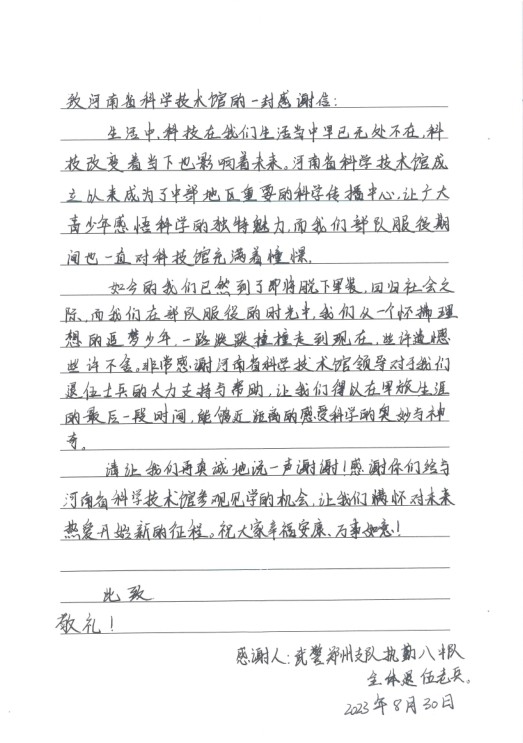 致河南省科学技术馆的一封感谢信：
生活中，科技在我们生活当中早已无处不在，科
技改变着当下也影响着未来。河南省科学技术馆成
立以来成为了中部地区重要的科学传播中心，让广大
青少年感悟科学的独特魅力，而我们部队服役期
间也一直对科技馆充满着憧憬。
如今的我们已然到了即将脱下军装，回归社会之
际，而我们在部队服役的时光中，我们从一个怀揣理
想的逐梦少年，一路跌跌撞撞走到现在，些许遗憾
些许不舍。非常感谢河南省科学技术馆领导对于我们
退伍士兵的大力支持与帮助，让我们得以在军旅生涯
的最后一段时间，能够近距离的感受科学的奥妙与神
奇。
请让我们再真诚地说一声谢谢！感谢你们给与
河南省科学技术馆参观见学的机会，让我们满怀对未来
热爱开启新的征程。祝大家幸福安康、万事如意！
此致
敬礼！
感谢人：武警郑州支队执勤八中队
全体退伍老兵。
2023年8月30日